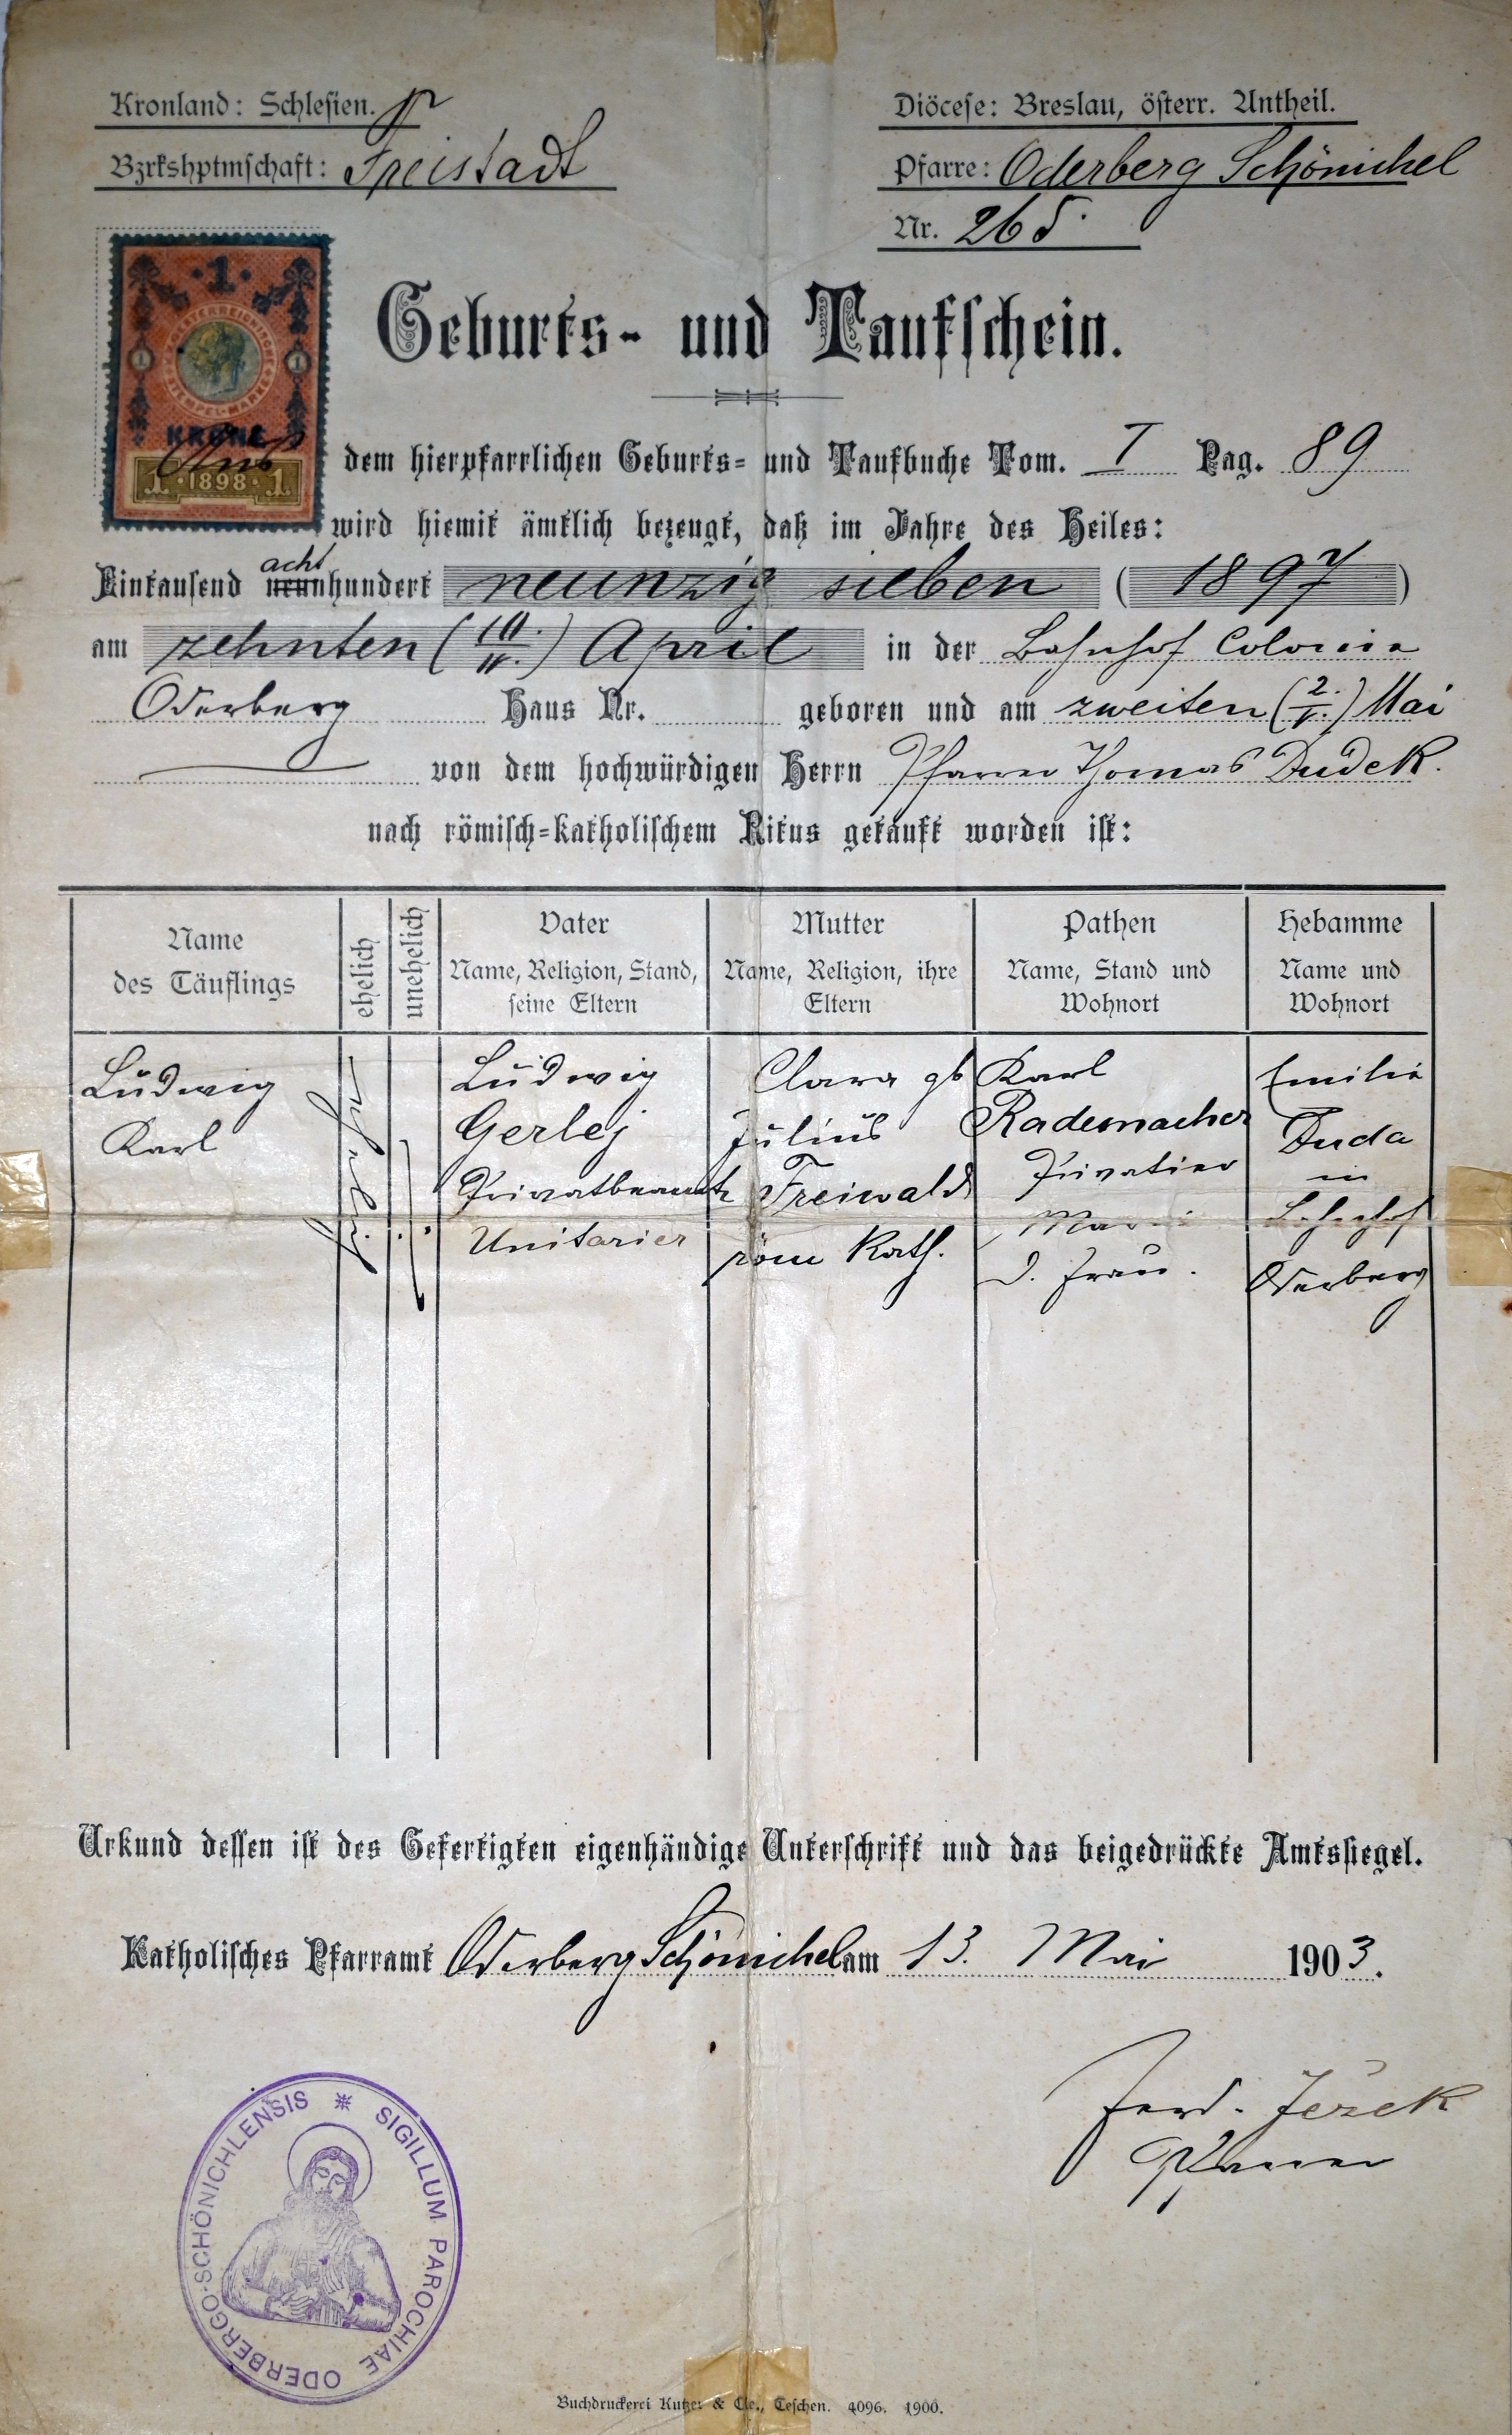 Kronland: Schlesien.
Bzrkshptmschaft: Freistadt
Diöcese: Breslau, österr. Antheil.
Pfarre: Oderberg Schönichel
Nr. 265.
·1·
ÖSTERREICHISCHE STEMPEL-MARKE
1 1
KRONE
1 ·1898· 1
Geburts- und Taufschein.
Aus dem hierpfarrlichen Geburts- und Taufbuche Tom. I Pag. 89
wird hiemit ämtlich bezeugt, daß im Jahre des Heiles:
acht
Eintausend neunhundert neunzig sieben (1897)
am zehnten (10./IV.) April in der Bahnhof Colonie
Oderberg Haus Nr. geboren und am zweiten (2./V.) Mai
von dem hochwürdigen Herrn Pfarrer Thomas Dudek.
nach römisch-katholischem Ritus getauft worden ist:
Name
des Täuflings
ehelich
unehelich
Vater
Name, Religion, Stand,
seine Eltern
Mutter
Name, Religion, ihre
Eltern
Pathen
Name, Stand und
Wohnort
Hebamme
Name und
Wohnort
Ludwig
Karl
ehelich
Ludwig
Gerlej
Privatbeamte
Unitarier
Clara gb
Julius
Freiwald
röm kath.
Karl
Rademacher
Privatier
Marie
d. Frau.
Emilie
Duda
in
Bahnhof
Oderberg
Urkund dessen ist des Gefertigten eigenhändige Unterschrift und das beigedrückte Amtssiegel.
Katholisches Pfarramt Oderberg Schönichel am 13. Mai 1903.
Ferd. Ježek
Pfarrer
SIGILLUM PAROCHIAE ODERBERGO-SCHÖNICHLENSIS
Buchdruckerei Kutzer & Cie., Teschen. 4096. 1900.